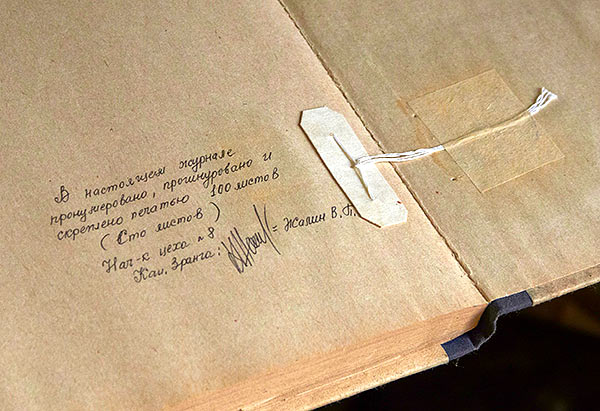 В настоящем журнале
пронумеровано, прошнуровано и
скреплено печатью 100 листов
(Сто листов)
Нач-к цеха №8
Кап. 3ранга: = Жалин В.П.